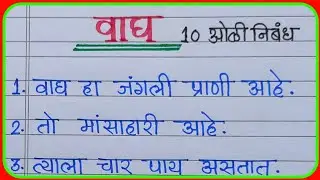 वाघ 10 ओळी निबंध
1. वाघ हा जंगली प्राणी आहे.
2. तो मांसाहारी आहे.
3. त्याला चार पाय असतात.